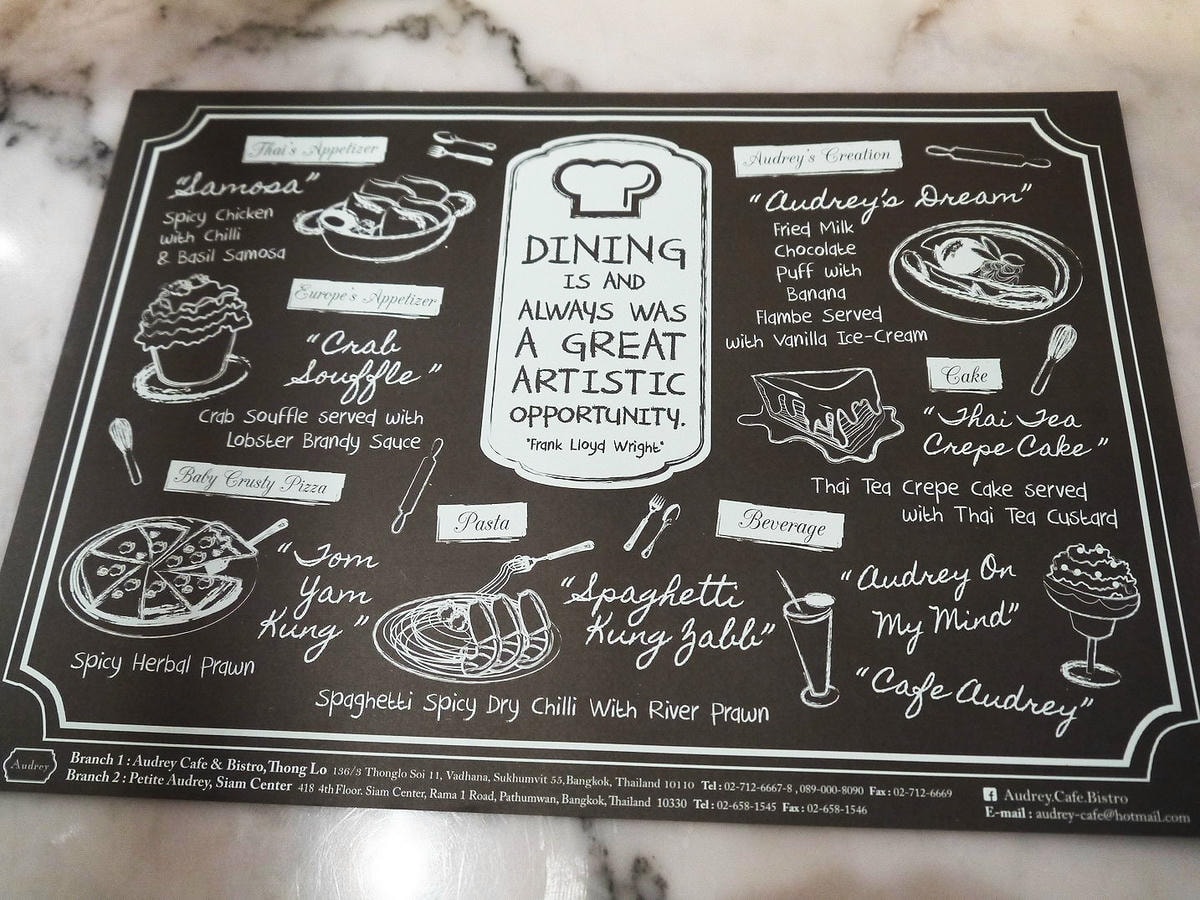 Thai's Appetizer
"Samosa"
Spicy Chicken
with Chilli
& Basil Samosa
Europe's Appetizer
"Crab
Souffle"
Crab Souffle served with
Lobster Brandy Sauce
Baby Crusty Pizza
"Tom
Yam
Kung"
Spicy Herbal Prawn
DINING
IS AND
ALWAYS WAS
A GREAT
ARTISTIC
OPPORTUNITY.
"Frank Lloyd Wright"
Pasta
"Spaghetti
Kung Zabb"
Spaghetti Spicy Dry Chilli With River Prawn
Audrey's Creation
"Audrey's Dream"
Fried Milk
Chocolate
Puff with
Banana
Flambe Served
with Vanilla Ice-Cream
Cake
"Thai Tea
Crepe Cake"
Thai Tea Crepe Cake served
with Thai Tea Custard
Beverage
"Audrey On
My Mind"
"Cafe Audrey"
Audrey
Branch 1 : Audrey Cafe & Bistro, Thong Lo 136/3 Thonglo Soi 11, Vadhana, Sukhumvit 55, Bangkok, Thailand 10110 Tel : 02-712-6667-8 , 089-000-8090 Fax : 02-712-6669
Branch 2 : Petite Audrey, Siam Center 418 4th Floor. Siam Center, Rama 1 Road, Pathumwan, Bangkok, Thailand 10330 Tel : 02-658-1545 Fax : 02-658-1546
f Audrey.Cafe.Bistro
E-mail : audrey-cafe@hotmail.com